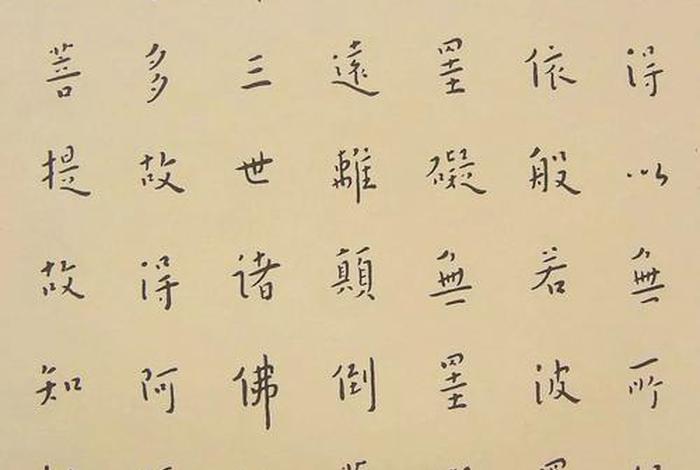 得以無所
依般若波
罣礙無罣
遠離顛倒
三世諸佛
多故得阿
菩提故知